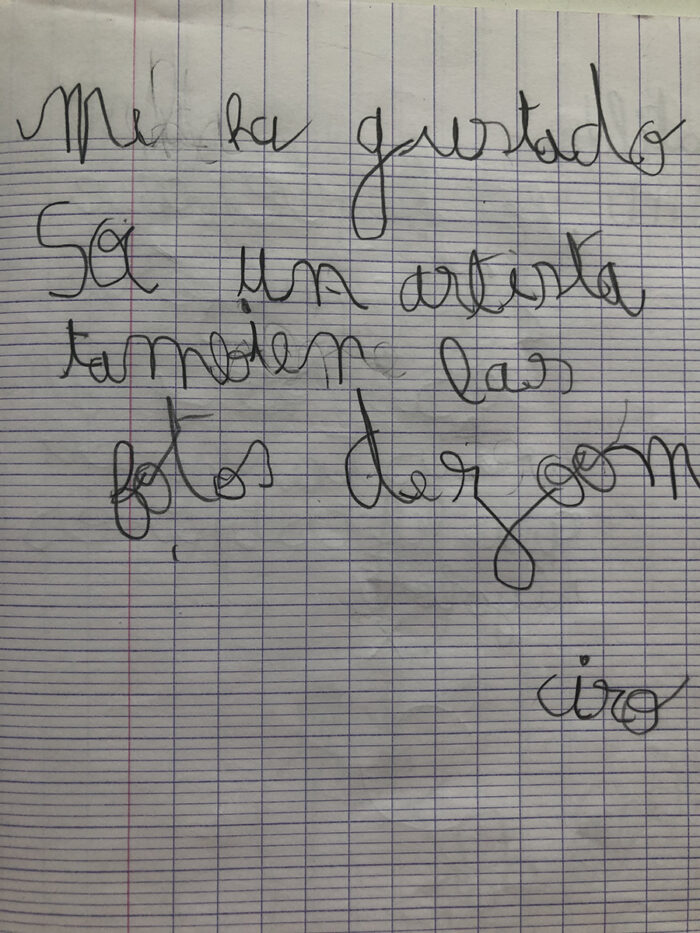 Mi ha gustado
Se un artista
tambien las
fotos der gom
ciro